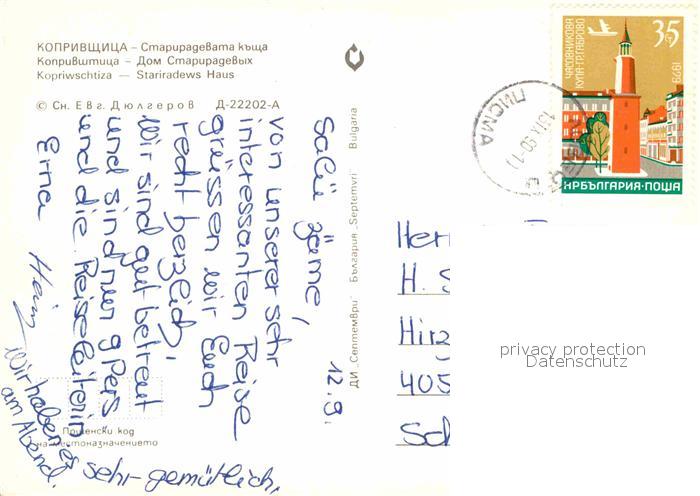 КОПРИВЩИЦА – Старирадевата къща
Копривштица – Дом Старирадевых
Kopriwschtiza – Stariradews Haus
© Сн. Евг. Дюлгеров Д-22202-А
ДИ „Септември" България „Septemvri" Bulgaria
12.9.
Salü zäme,
von unserer sehr
interessanten Reise
grüssen wir Euch
recht herzlich.
Wir sind gut betreut
und sind nur 9 Pers.
und die Reiseleiterin
Erna Heinz
Wir haben es
am Abend
sehr gemütlich.
на местоназначението
код
ЧАСОВНИКОВА
КУЛА-ГР. ГАБРОВО
35
1979
НРБЪЛГАРИЯ·ПОЩА
ПИСМА
Herr
H. S
Hirz
405
Sch
privacy protection
Datenschutz